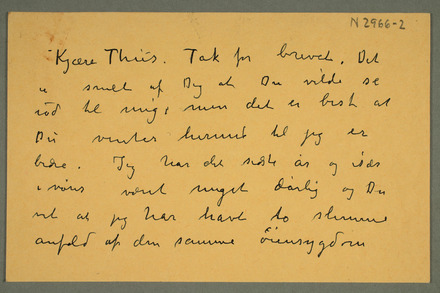 N 2966-2
Kjære Thiis. Tak for brevet. Det
er snilt af Dig at Du vilde se
ind til mig, men det er best at
Du venter hermed til jeg er
bedre. Jeg har det sidste år og især
i våres været meget dårlig og Du
vet at jeg har havt to slemme
anfald af den samme Øiensygdom